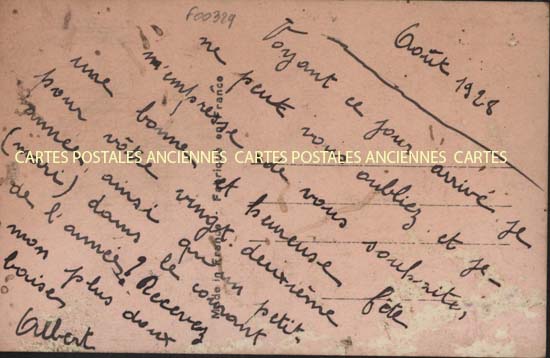 F00329
Août 1928
Voyant ce jour arrivé, je
ne peut vous oubliez et je
m'empresse de vous souhaiter,
une bonne et heureuse fête
pour vôtre vingt deuxième
année, ainsi qu'un petit
(mari) dans le courant
de l'année? Recevez
mon plus doux
baisers
Albert
CARTES POSTALES ANCIENNES CARTES POSTALES ANCIENNES CARTES
Made in France